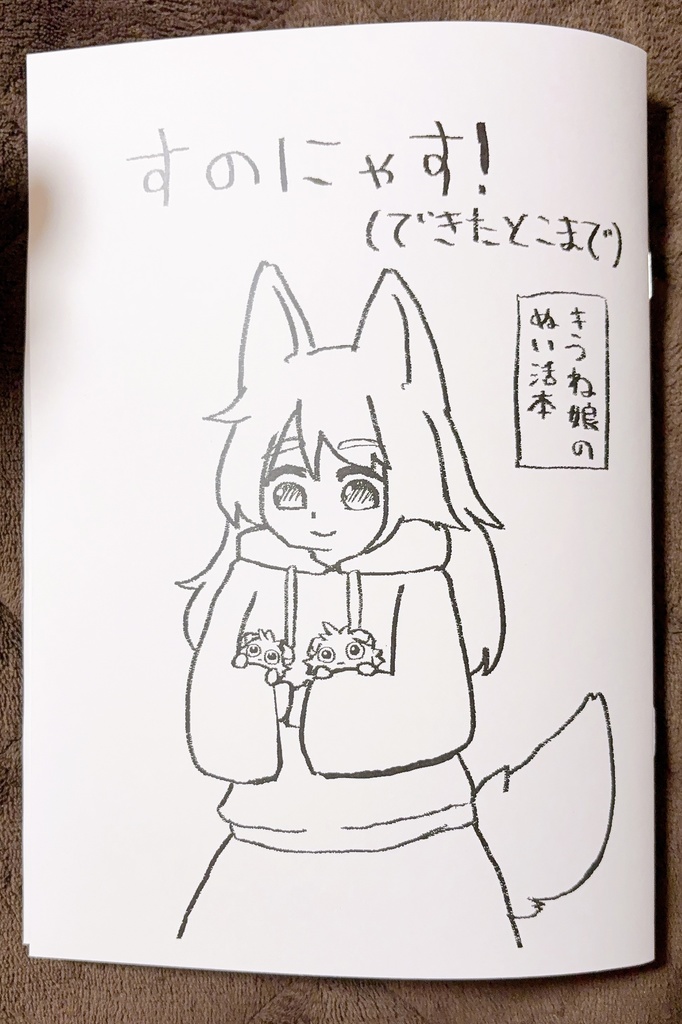 すのにゃす!
(できたとこまで)
きつね娘の
ぬい活本